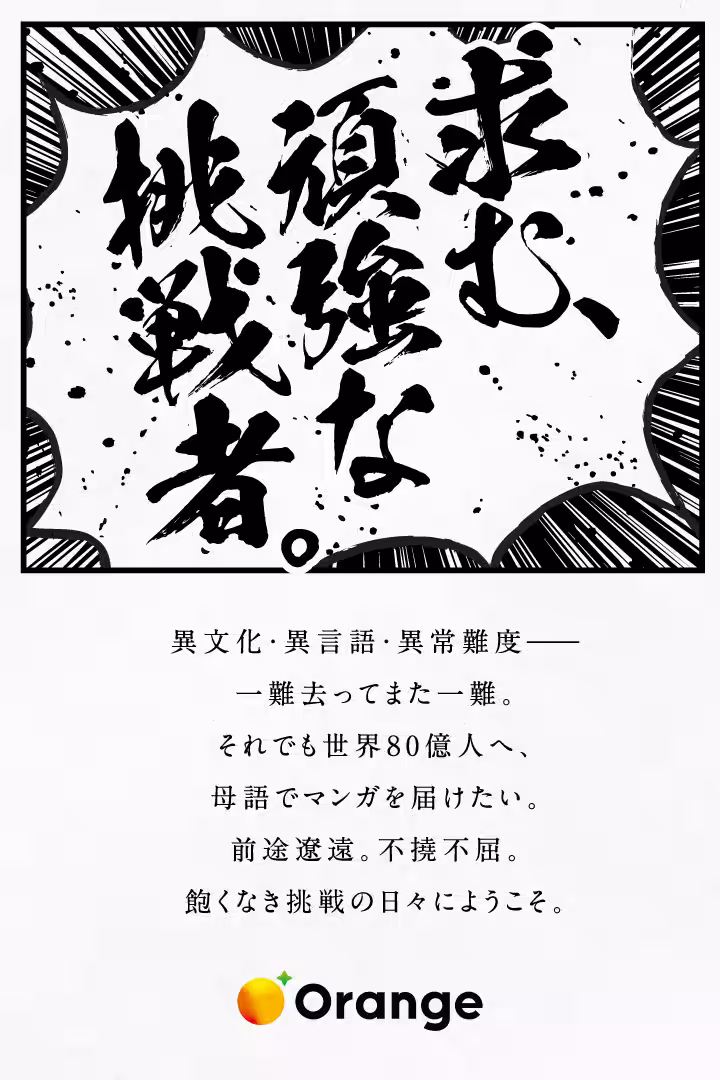 求む、
頑強な
挑戦者。
異文化・異言語・異常難度——
一難去ってまた一難。
それでも世界80億人へ、
母語でマンガを届けたい。
前途遼遠。不撓不屈。
飽くなき挑戦の日々にようこそ。
Orange